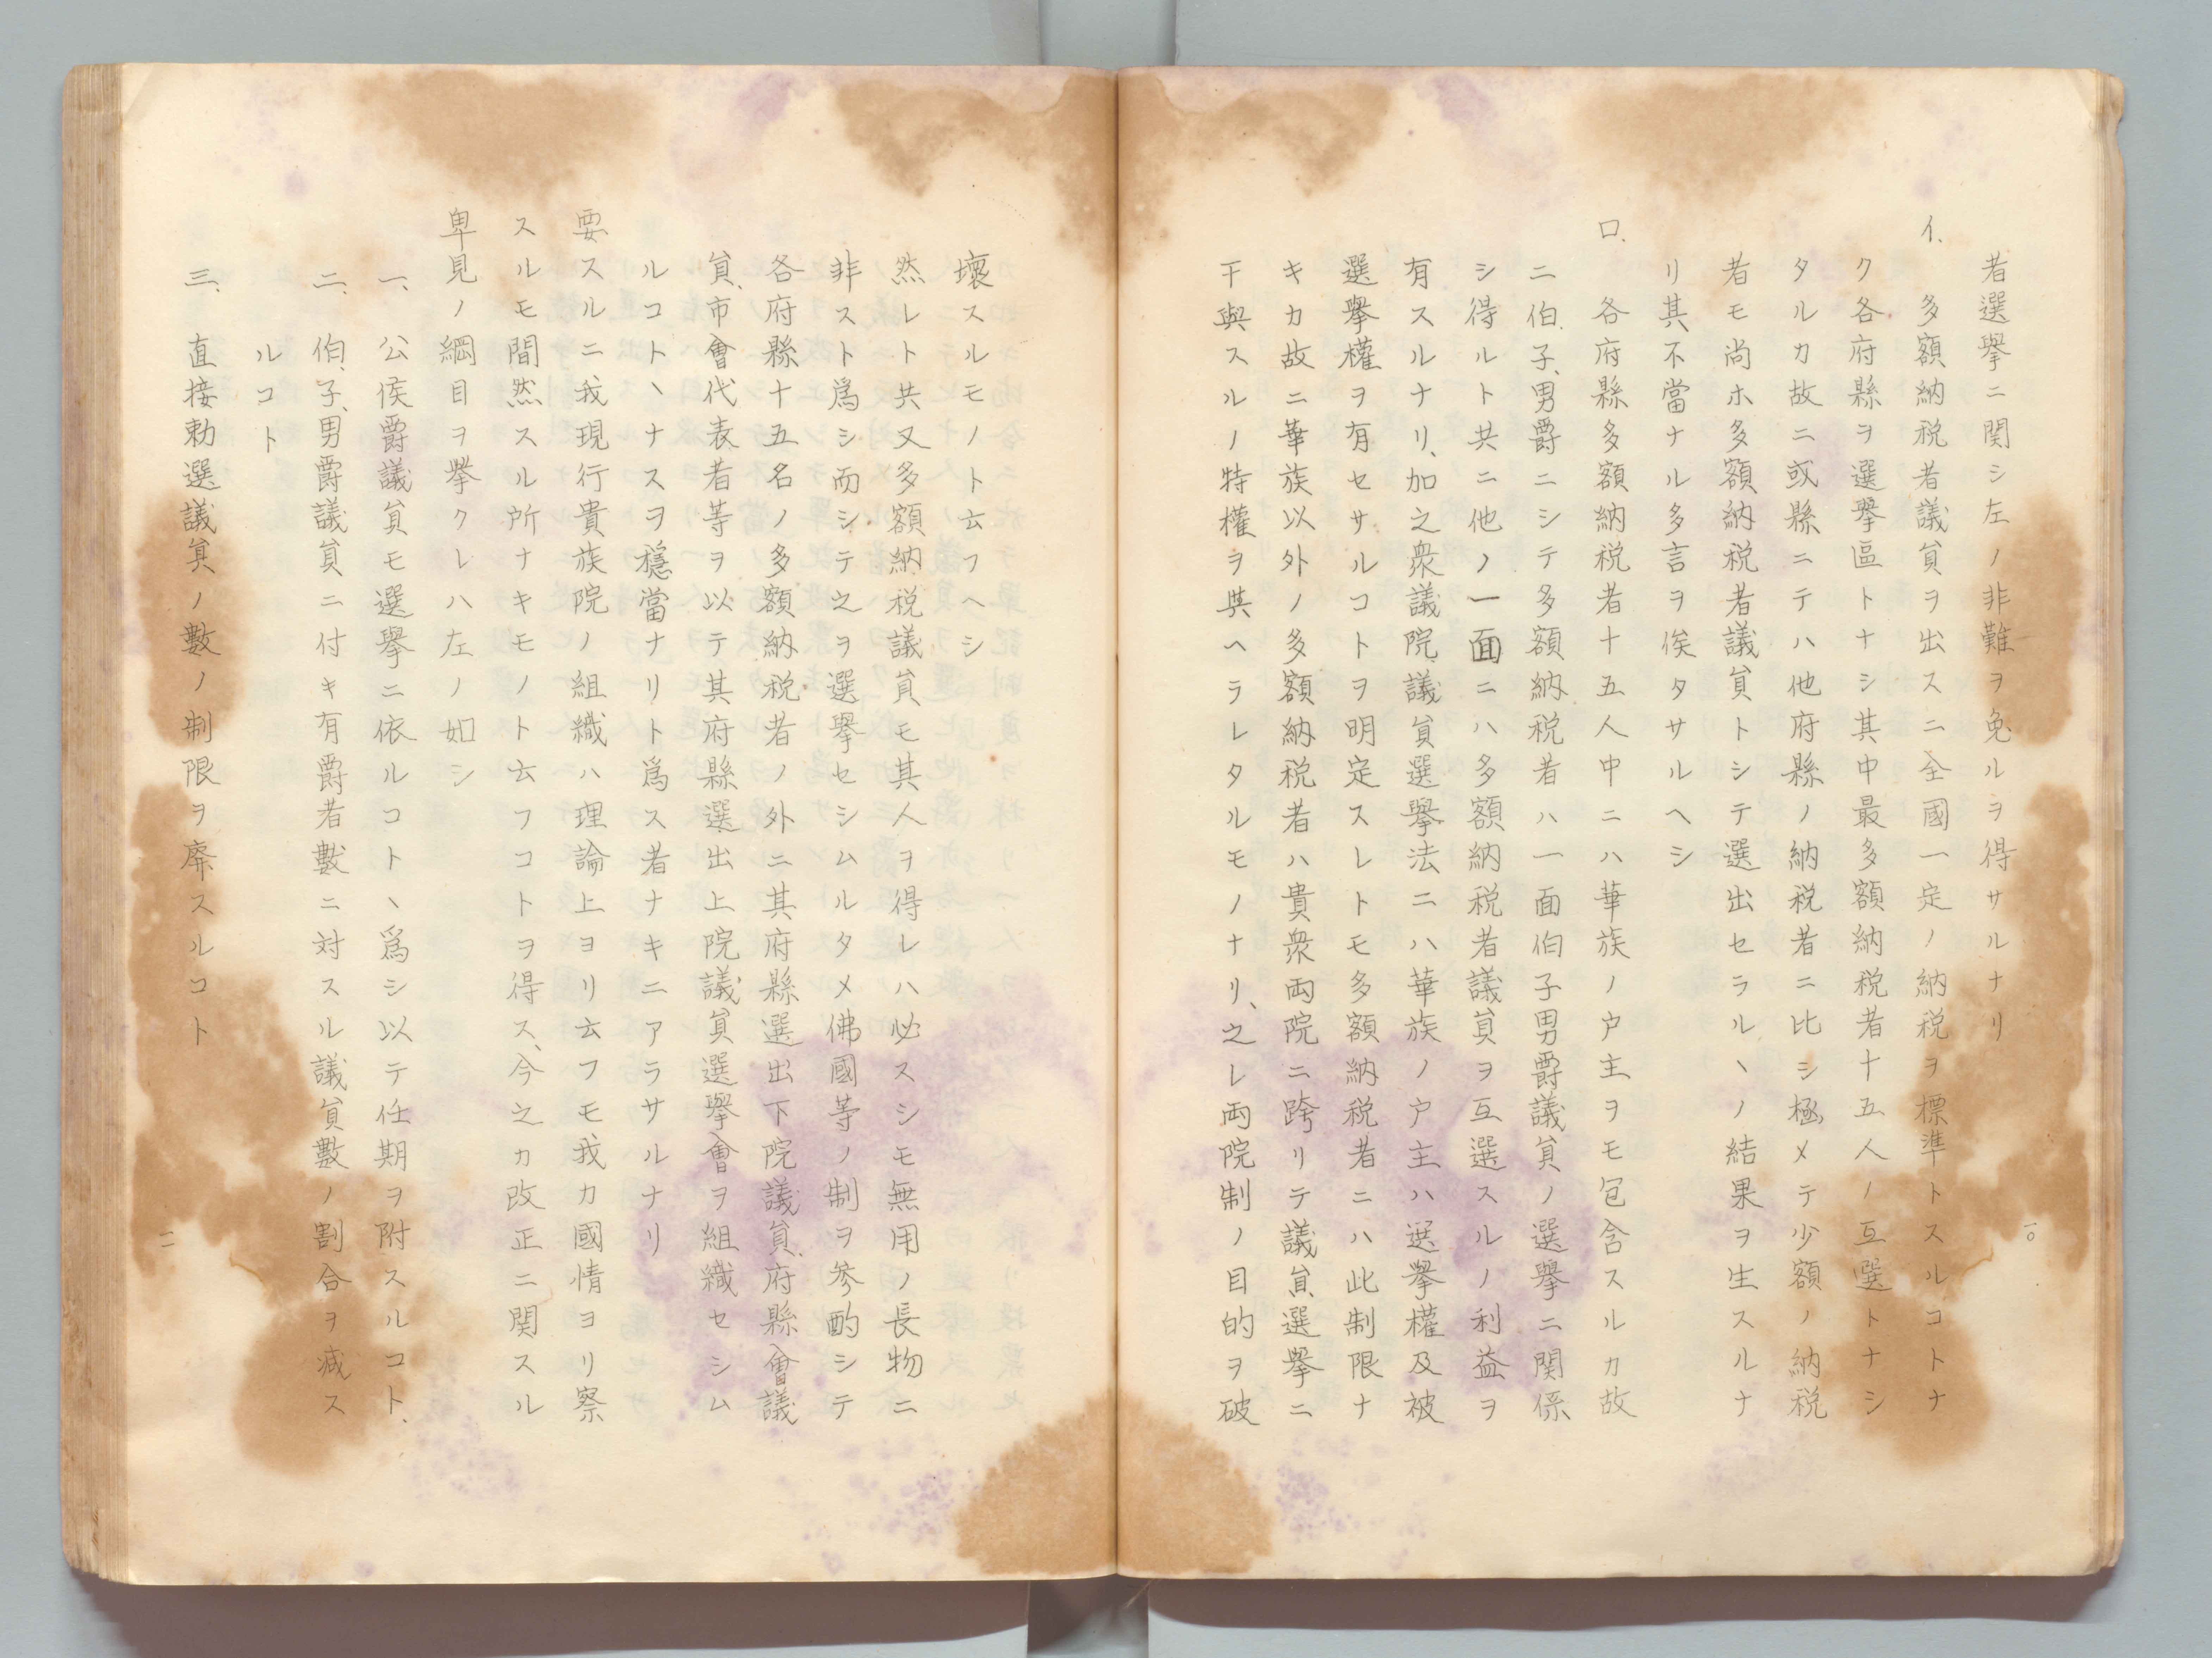 者選擧ニ関シ左ノ非難ヲ免ルヲ得サルナリ
イ、多額納税者議員ヲ出スニ全國一定ノ納税ヲ標準トスルコトナ
ク各府縣ヲ選擧區トナシ其中最多額納税者十五人ノ互選トナシ
タルカ故ニ或縣ニテハ他府縣ノ納税者ニ比シ極メテ少額ノ納税
者モ尚ホ多額納税者議員トシテ選出セラルヽノ結果ヲ生スルナ
リ其不當ナル多言ヲ俟タサルヘシ
ロ、各府縣多額納税者十五人中ニハ華族ノ戸主ヲモ包含スルカ故
ニ伯、子、男爵ニシテ多額納税者ハ一面伯子男爵議員ノ選擧ニ関係
シ得ルト共ニ他ノ一面ニハ多額納税者議員ヲ互選スルノ利益ヲ
有スルナリ、加之衆議院議員選擧法ニハ華族ノ戸主ハ選擧權及被
選擧權ヲ有セサルコトヲ明定スレトモ多額納税者ニハ此制限ナ
キカ故ニ華族以外ノ多額納税者ハ貴衆両院ニ跨リテ議員選擧ニ
干與スルノ特權ヲ與ヘラレタルモノナリ、之レ両院制ノ目的ヲ破
一〇
壞スルモノト云フヘシ
然レト共又多額納税議員モ其人ヲ得レハ必スシモ無用ノ長物ニ
非スト爲シ而シテ之ヲ選擧セシムルタメ佛國等ノ制ヲ参酌シテ
各府縣十五名ノ多額納税者ノ外ニ其府縣選出下院議員、府縣會議
員、市會代表者等ヲ以テ其府縣選出上院議員選擧會ヲ組織セシム
ルコトヽナスヲ穏當ナリト爲ス者ナキニアラサルナリ
要スルニ我現行貴族院ノ組織ハ理論上ヨリ云フモ我カ國情ヨリ察
スルモ間然スル所ナキモノト云フコトヲ得ス、今之カ改正ニ関スル
卑見ノ綱目ヲ擧クレハ左ノ如シ
一、公侯爵議員モ選擧ニ依ルコトヽ爲シ以テ任期ヲ附スルコト、
二、伯、子、男爵議員ニ付キ有爵者數ニ対スル議員數ノ割合ヲ減ス
ルコト
三、直接勅選議員ノ數ノ制限ヲ廃スルコト
一一